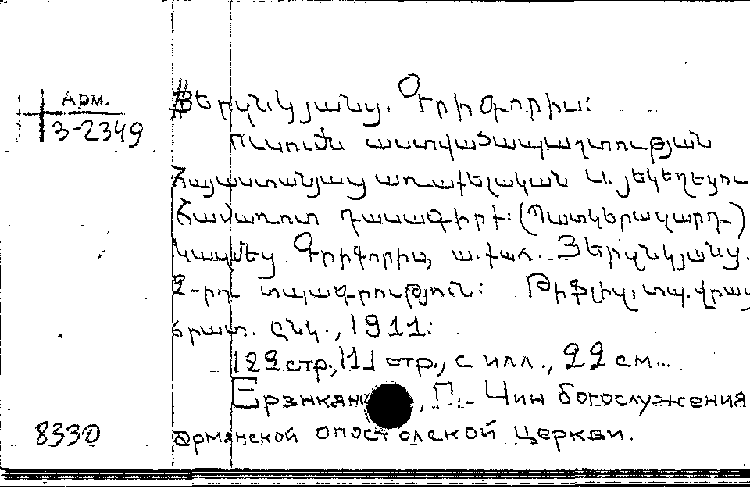 Арм.
3-2349
Երզնկյանց. Գրիգորիս:
Ուսումն աստվածապաշտության
Հայաստանյայց առաքելական Ս. յեկեղեցու
Համառոտ դասագիրք: (Պատկերազարդ)
Կազմեց Գրիգորիս, ա.քահ. Յերզնկյանց.
2-րդ տպագրություն: Թիֆլիս, տպ. վրաց
հրատ. ընկ., 1911:
122 стр., 111 стр., с илл., 22 см...
Г. - Чин богослужения
армянской опостолской церкви.
8330